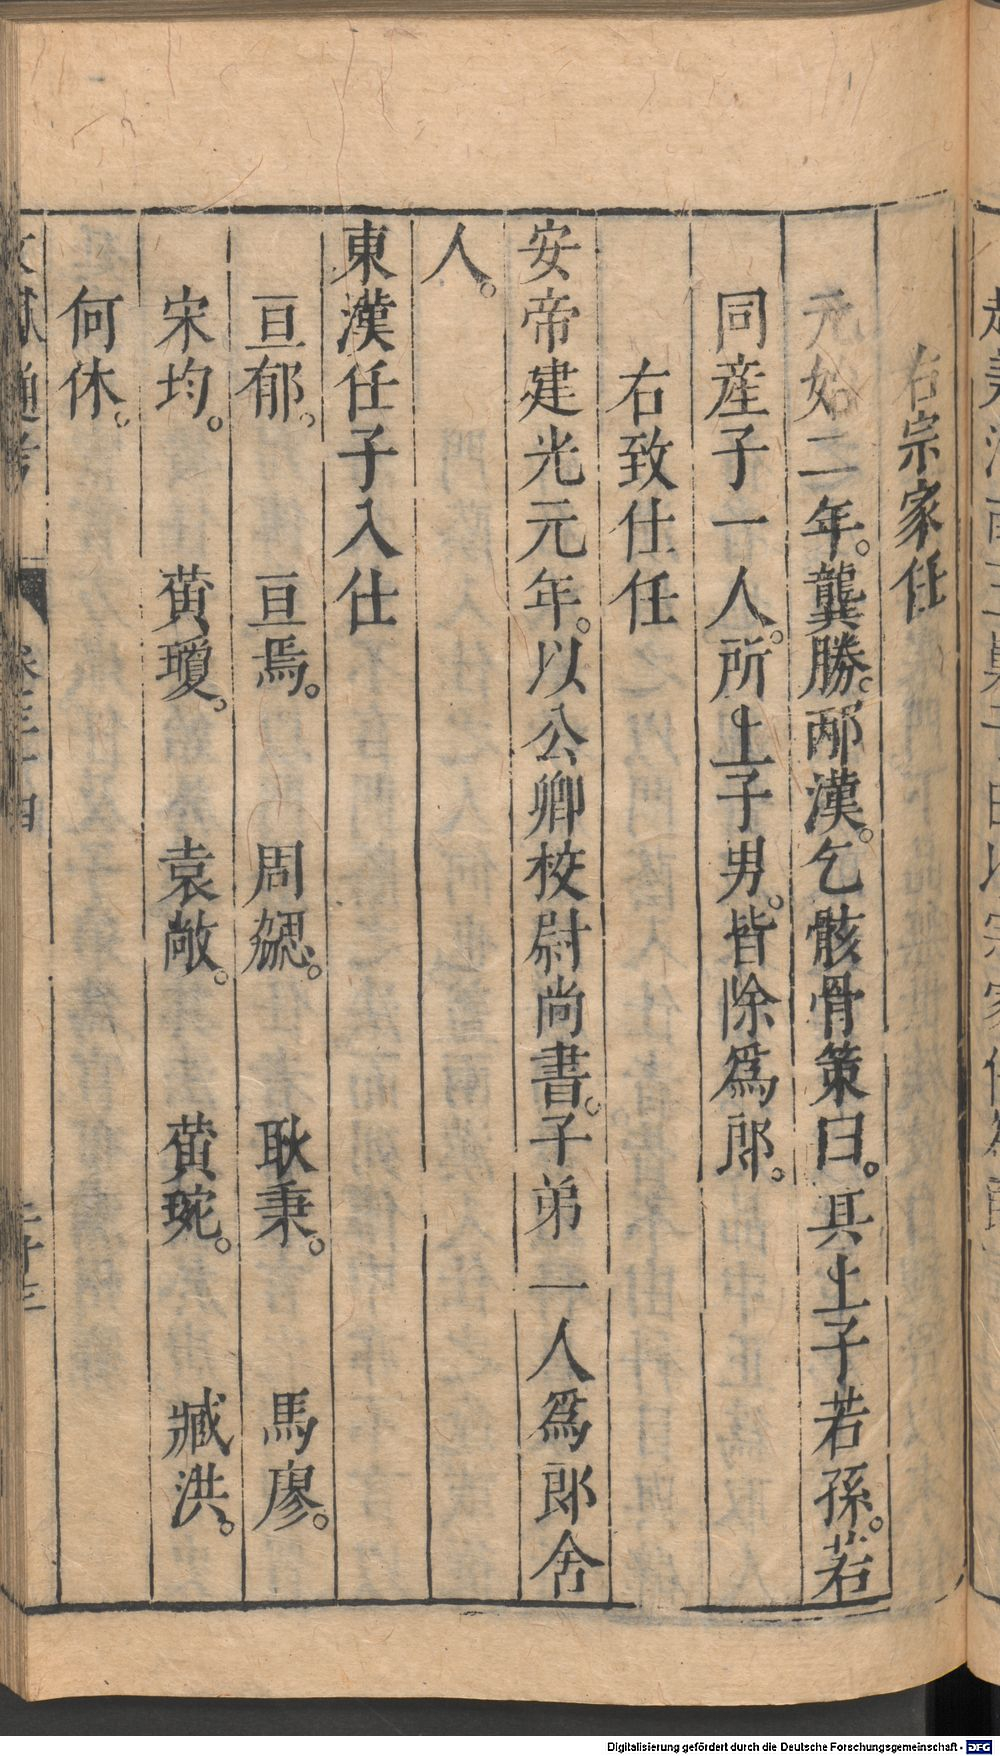 右宗家任
元始二年。龔勝。邴漢。乞骸骨策曰。其上子若孫。若
同産子一人。所上子男。皆除爲郎。
右致仕任
安帝建光元年。以公卿校尉尚書。子弟一人爲郎舍
人。
東漢任子入仕
亘郁。　亘焉。　周勰。　耿秉。　馬廖。
宋均。　黃瓊。　袁敞。　黃琬。　臧洪。
何休。
文獻通考　卷三十四　二十三
Digitalisierung gefördert durch die Deutsche Forschungsgemeinschaft - DFG